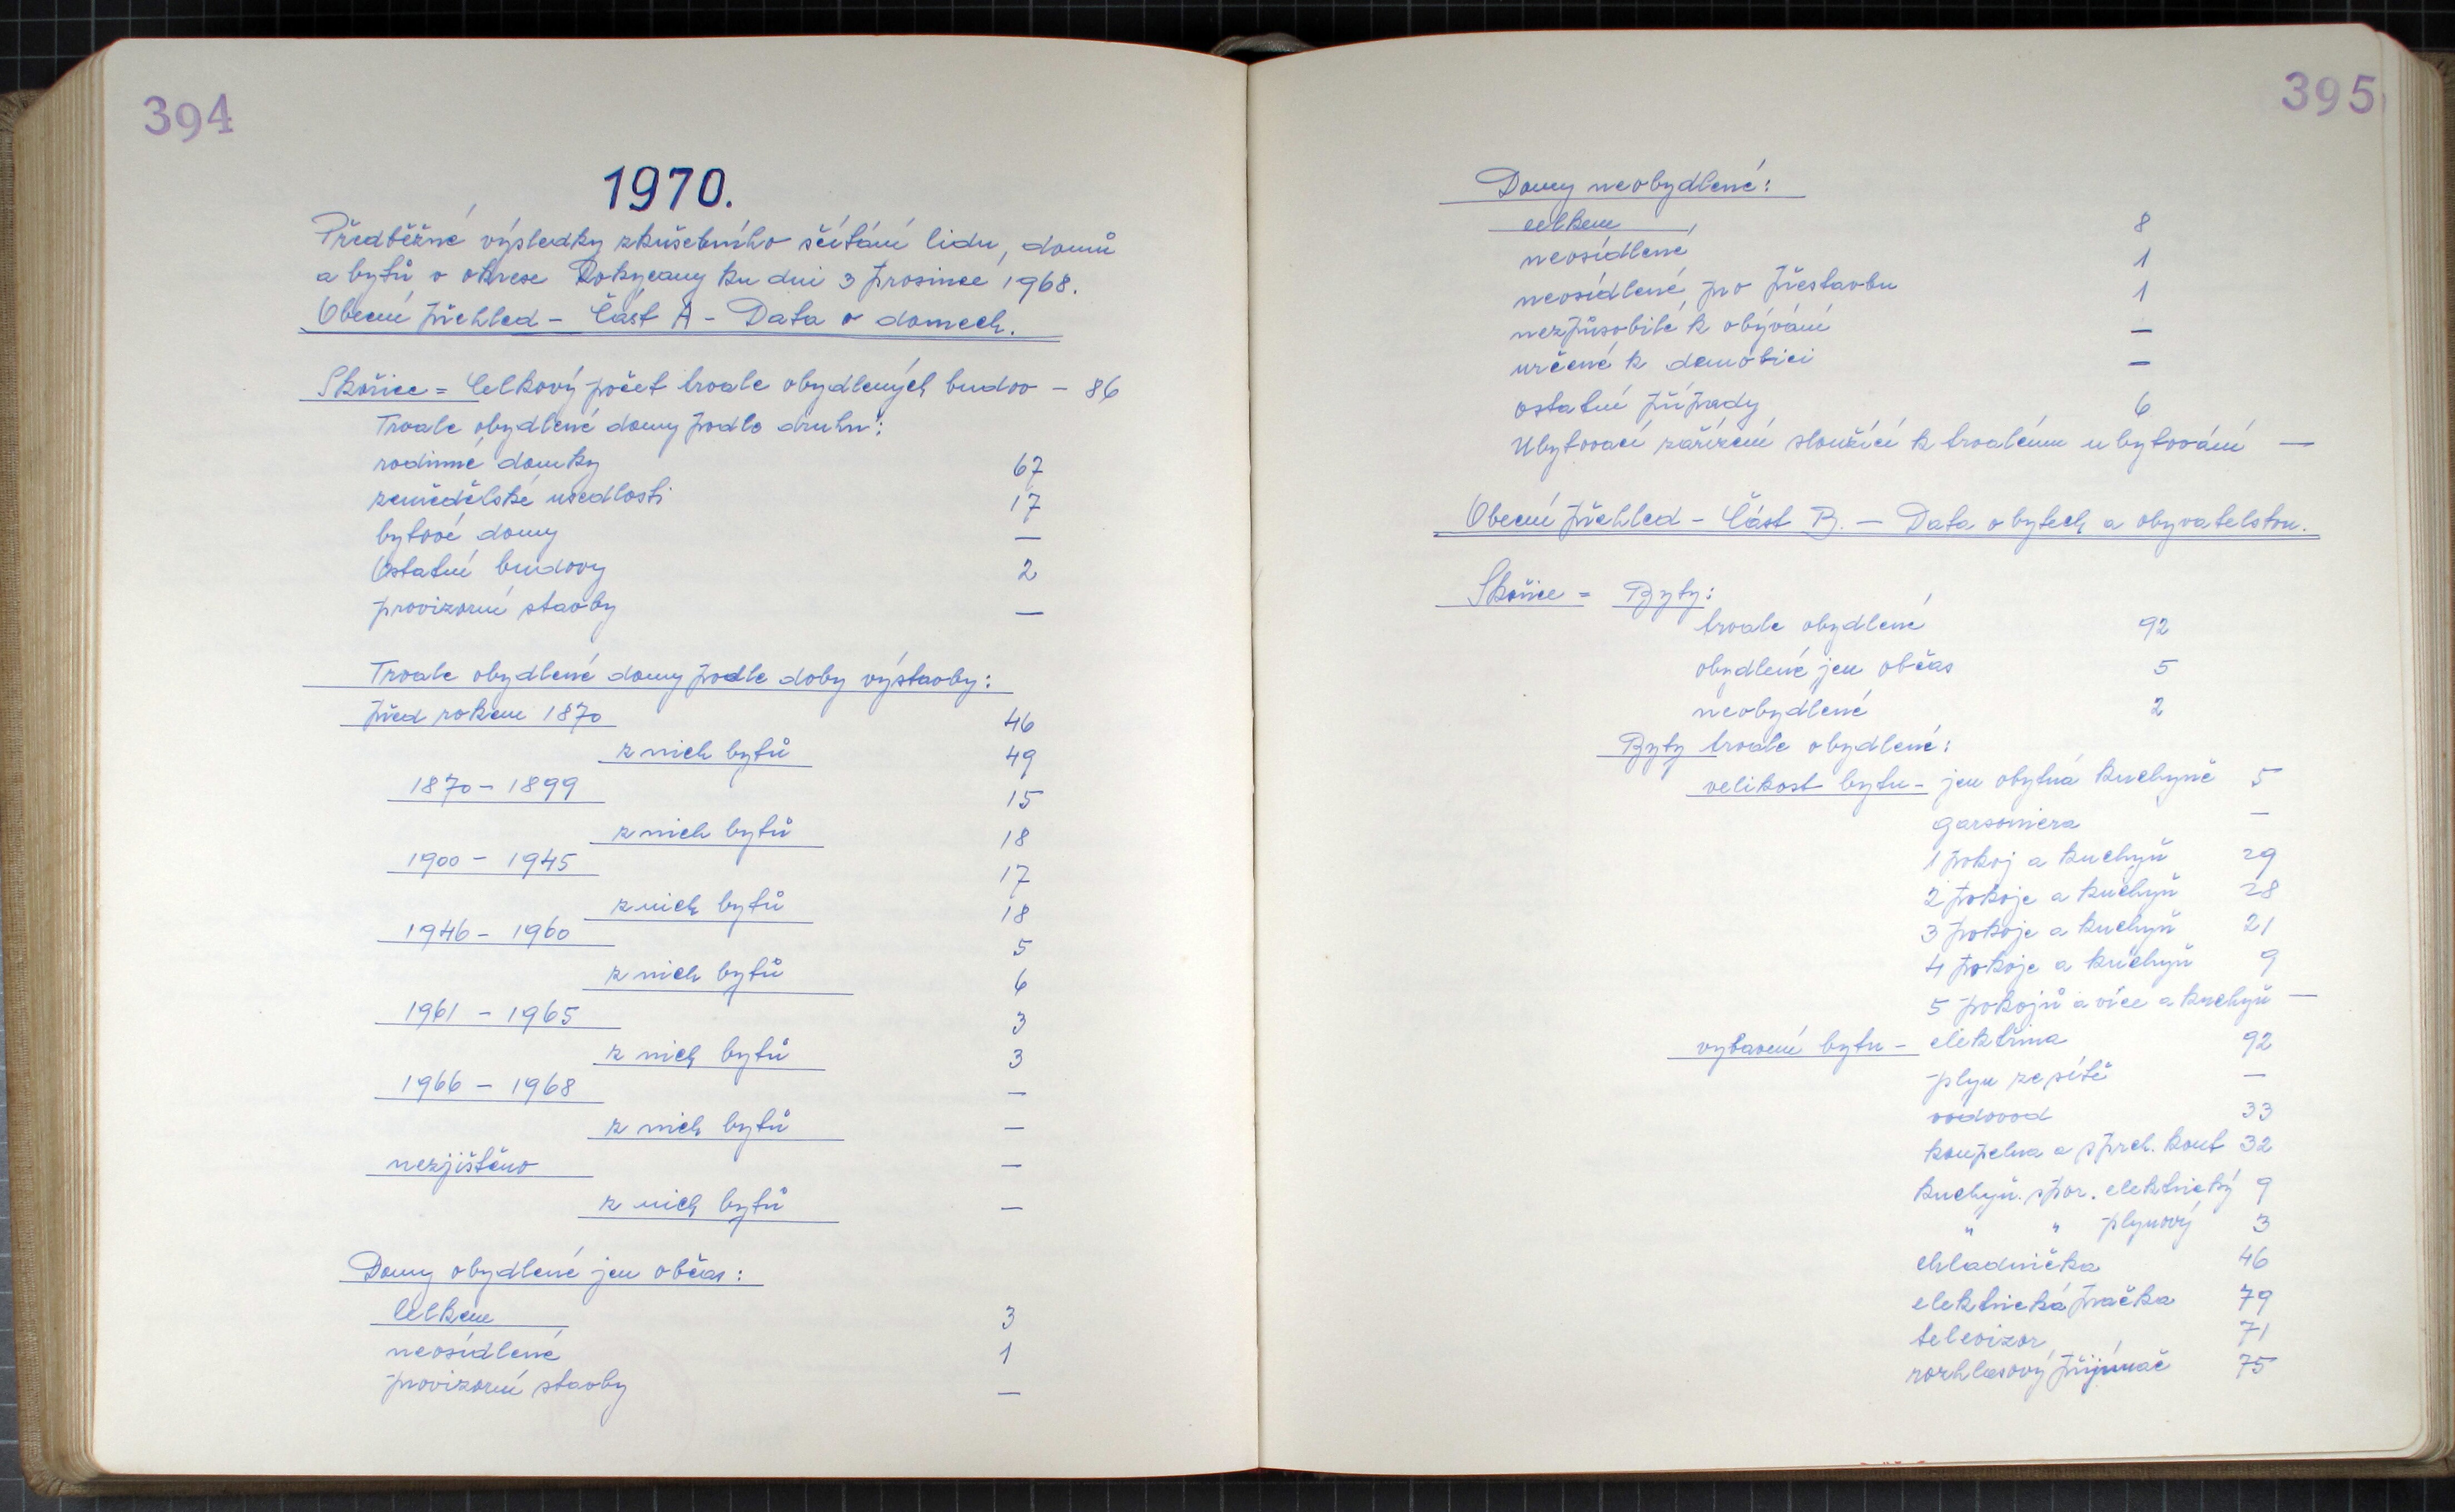 394
1970.
Předběžné výsledky zkušebního sčítání lidu, domů
a bytů v okrese Rokycany ku dni 3 prosince 1968.
Obecní přehled - Část A - Data o domech.
Skořice = Celkový počet trvale obydlených budov - 86
Trvale obydlené domy podle druhu:
rodinné domky 67
zemědělské usedlosti 17
bytové domy —
Ostatní budovy 2
provizorní stavby —
Trvale obydlené domy podle doby výstavby:
před rokem 1870 46
z nich bytů 49
1870 - 1899 15
z nich bytů 18
1900 - 1945 17
z nich bytů 18
1946 - 1960 5
z nich bytů 6
1961 - 1965 3
z nich bytů 3
1966 - 1968 —
z nich bytů —
nezjištěno —
z nich bytů —
Domy obydlené jen občas:
Celkem 3
neosídlené 1
provizorní stavby —
395
Domy neobydlené:
celkem 8
neosídlené 1
neosídlené pro přestavbu 1
nezpůsobilé k obývání —
určené k demolici —
ostatní případy 6
Ubytovací zařízení sloužící k trvalému ubytování —
Obecní přehled - Část B. — Data o bytech a obyvatelstvu.
Skořice = Byty:
trvale obydlené 92
obydlené jen občas 5
neobydlené 2
Byty trvale obydlené:
velikost bytu - jen obytná kuchyně 5
garsoniera —
1 pokoj a kuchyň 29
2 pokoje a kuchyň 28
3 pokoje a kuchyň 21
4 pokoje a kuchyň 9
5 pokojů a více a kuchyň —
vybavení bytu - elektřina 92
plyn ze sítě —
vodovod 33
koupelna a sprch. kout 32
kuchyň. spor. elektrický 9
" " plynový 3
chladnička 46
elektrická pračka 79
televizor 71
rozhlasový přijímač 75